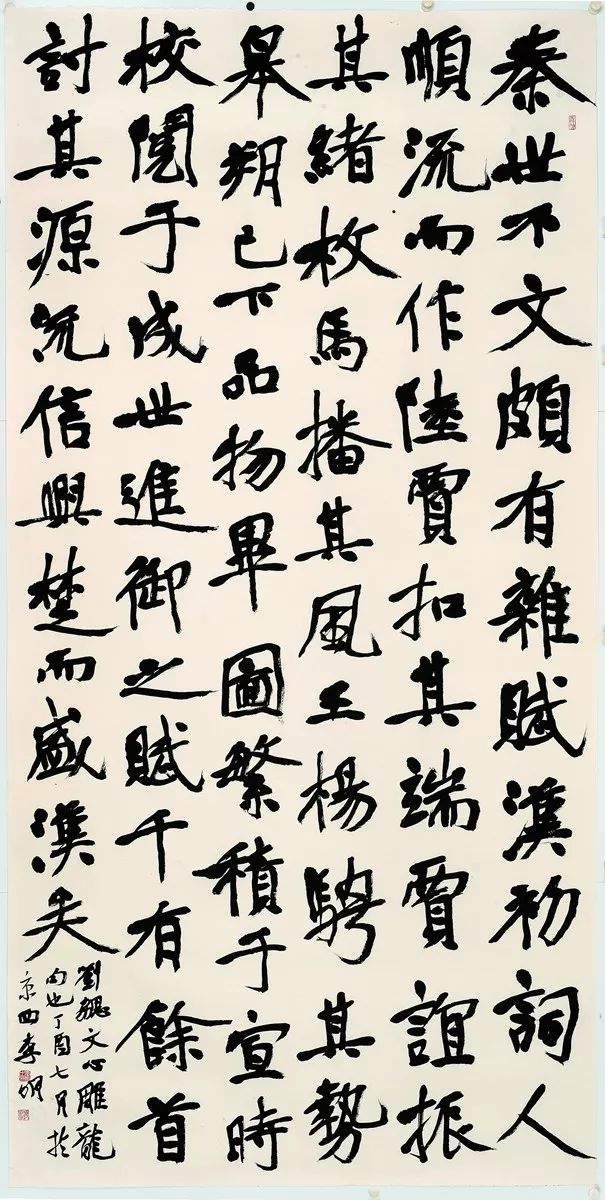 秦世不文頗有雜賦漢初詞人
順流而作陸賈扣其端賈誼振
其緒枚馬播其風王楊騁其勢
皋朔已下品物畢圖繁積于宣時
校閱于成世進御之賦千有餘首
討其源流信興楚而盛漢矣
劉勰文心雕龍
句也丁酉七月於
京西李明